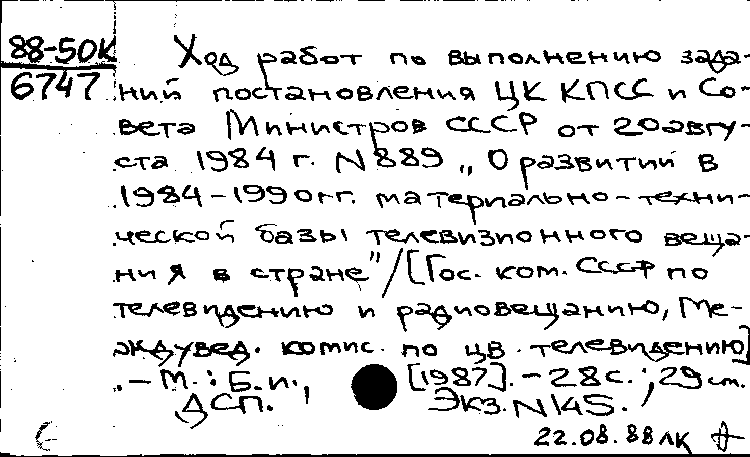 88-50К
6747
Ход работ по выполнению зада-
ний постановления ЦК КПСС и Со-
вета Министров СССР от 20 авгу-
ста 1984 г. N 889 „О развитии в
1984-1990 гг. материально-техни-
ческой базы телевизионного веща-
ния в стране"/[Гос. ком. СССР по
телевидению и радиовещанию, Ме-
ждувед. комис. по цв. телевидению]
.-М.: Б.и., [1987].-28с.; 29 см.
ДСП. Экз. N 145.
22.08.88 лк